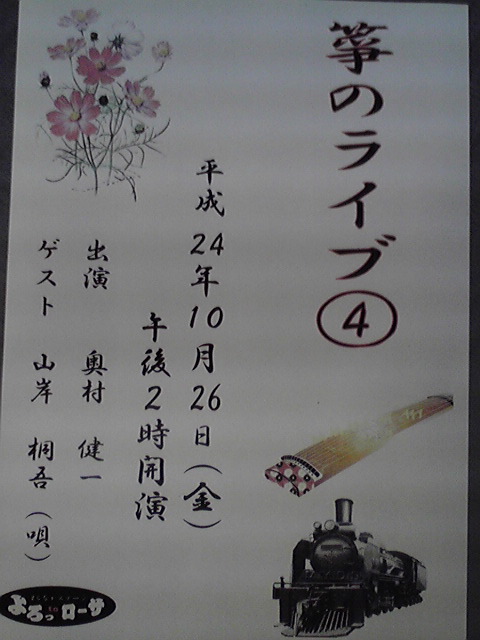 箏のライブ④
平成24年10月26日(金)
午後2時開演
出演 奥村 健一
ゲスト 山岸 桐吾(唄)
よろっtoローサ